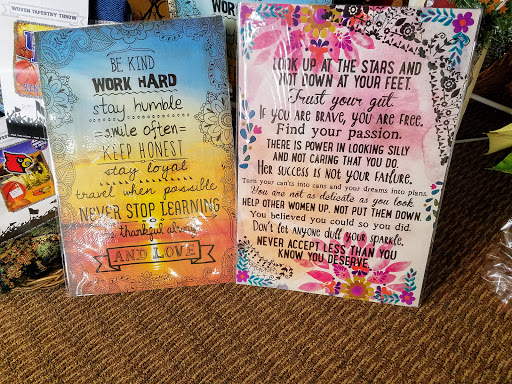 WOVEN TAPESTRY THROW
BE KIND
WORK HARD
stay humble
smile often
KEEP HONEST
stay loyal
travel when possible
NEVER STOP LEARNING
be thankful always
AND LOVE
LOOK UP AT THE STARS AND
NOT DOWN AT YOUR FEET.
Trust your gut.
IF YOU ARE BRAVE, YOU ARE FREE.
Find your passion.
THERE IS POWER IN LOOKING SILLY
AND NOT CARING THAT YOU DO.
HER SUCCESS IS NOT YOUR FAILURE.
Turn your can'ts into cans and your dreams into plans.
You are not as delicate as you look
HELP OTHER WOMEN UP, NOT PUT THEM DOWN.
You believed you could so you did.
Don't let anyone dull your sparkle.
NEVER ACCEPT LESS THAN YOU
KNOW YOU DESERVE.